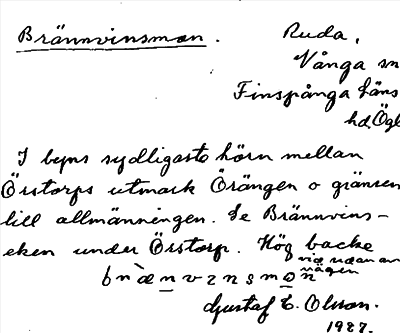 Brännvinsmon. Ruda,
Vånga sn
Finspånga läns
hd, Ögl
I byns sydligaste hörn mellan
Örstorps utmark Örängen o gränsen
till allmänningen. Se Brännvins-
eken under Örstorp. Hög backe
vid sidan av
vägen
Gustaf E. Olsson.
1927.